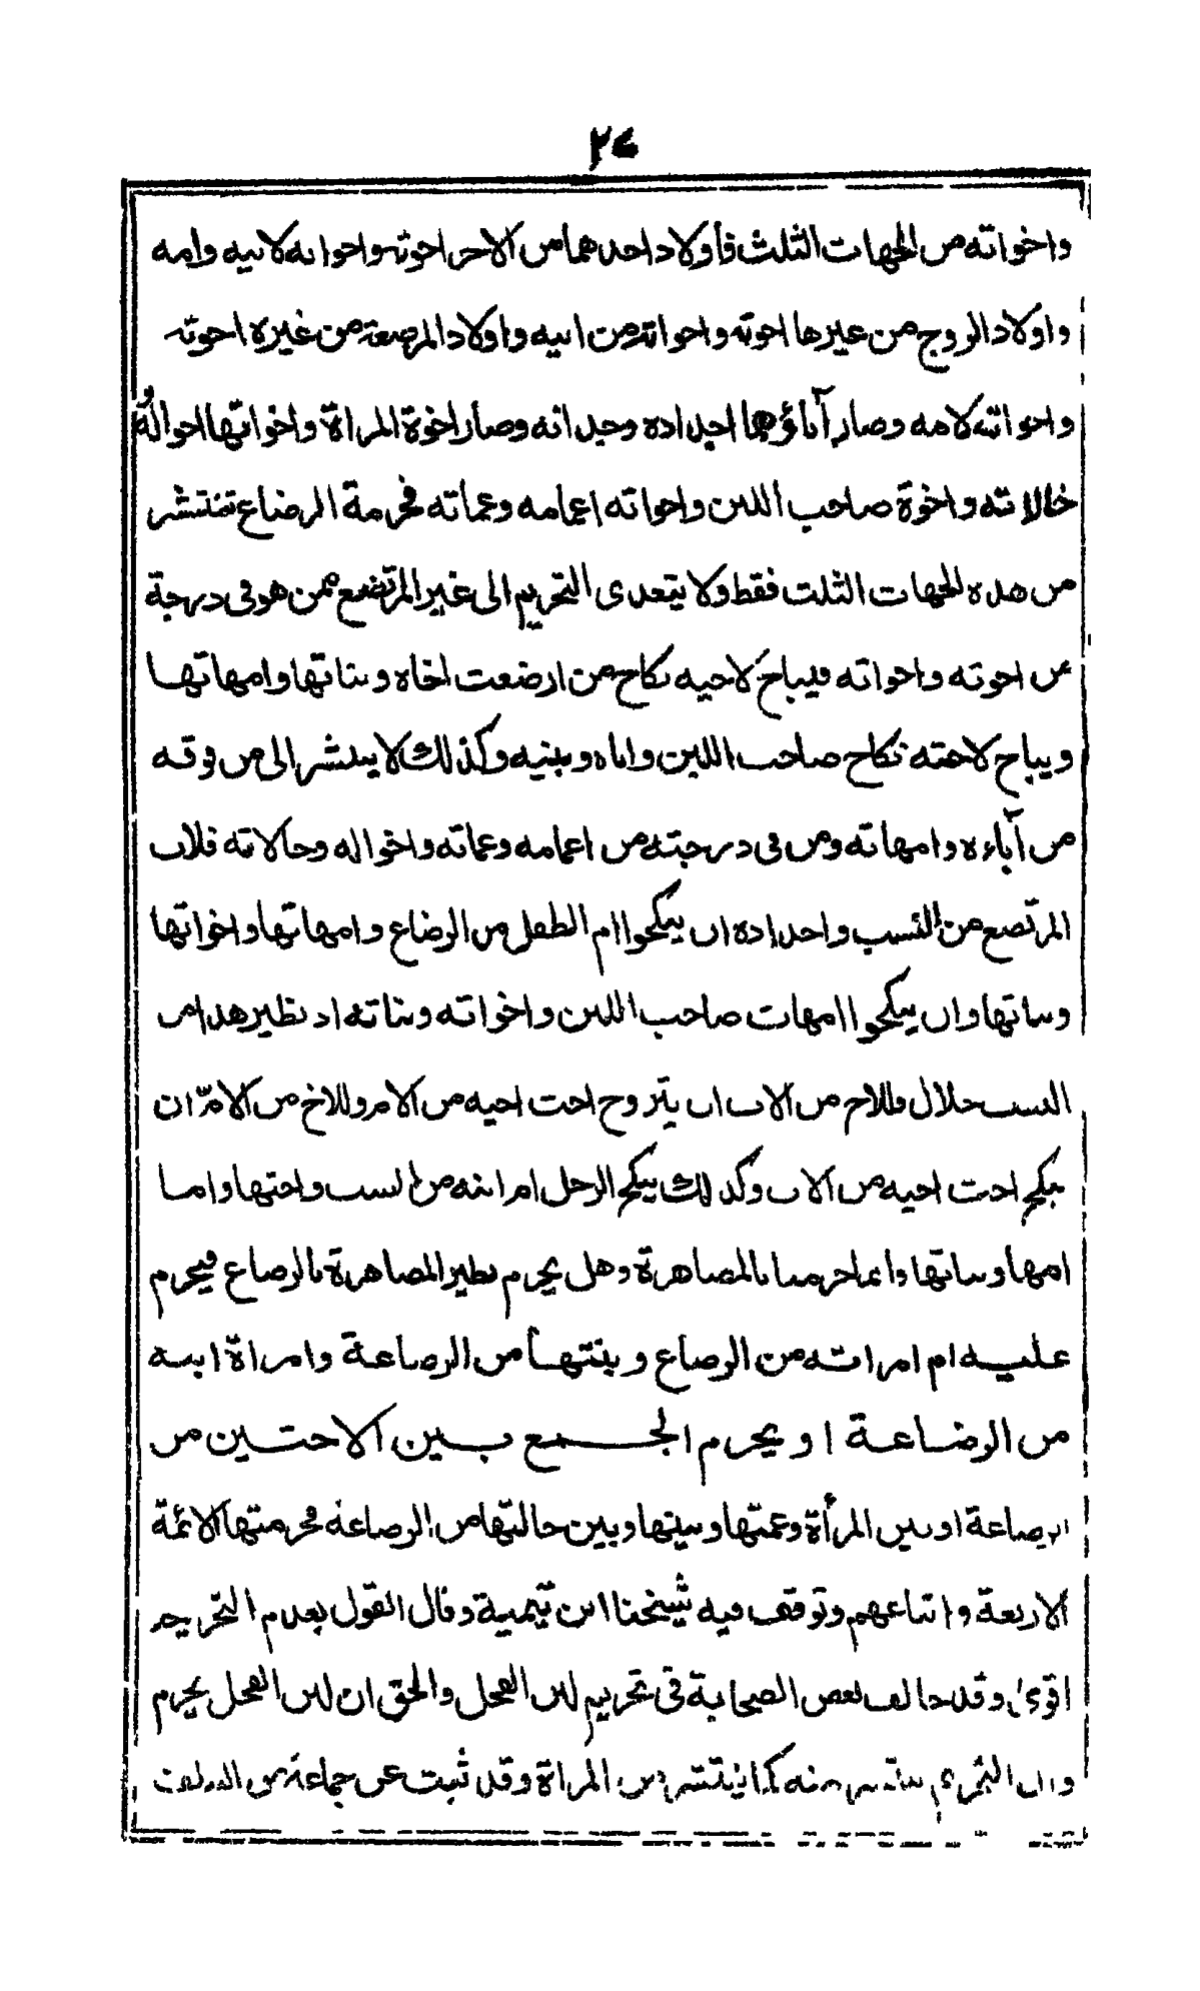 ٢٤
واخواته من الجهات الثلث فأولاد احدهما من الاخر اخوته واخواته لابيه وامه
واولاد الزوج من غيرها اخوته واخواته من ابيه واولاد المرضعة من غيره اخوته
واخواته لامه وصار آباؤهما اجداده وجداته وصار اخوة المرأة واخواتها اخواله
خالاته واخوة صاحب اللبن واخواته اعمامه وعماته فحرمة الرضاع تنتشر
من هذه الجهات الثلث فقط ولا يتعدى التحريم الى غير المرتضع ممن هو في درجة
من اخوته واخواته فيباح لاخيه نكاح من ارضعت اخاه وبناتها وامهاتها
ويباح لاخته نكاح صاحب اللبن واباه وبنيه وكذلك لا ينتشر الى من فوقه
من آباءه وامهاته ومن في درجته من اعمامه وعماته واخواله وخالاته فلاب
المرتضع من النسب واجداده ان ينكحوا ام الطفل من الرضاع وامهاتها واخواتها
وبناتها وان ينكحوا امهات صاحب اللبن واخواته وبناته اذ نظير هذا من
النسب حلال فللاخ من الاب ان يتزوج اخت اخيه من الام وللاخ من الام ان
ينكح اخت اخيه من الاب وكذلك ينكح الرجل ام ابنه من النسب واختها واما
امها وبناتها فانما حرمتا بالمصاهرة وهل يحرم نظير المصاهرة بالرضاع فيحرم
عليه ام امراته من الرضاع وبنتها من الرضاعة وامراة ابنه
من الرضاعة او يحرم الجمع بين الاختين من
الرضاعة او بين المرأة وعمتها وبينها وبين خالتها من الرضاعة فحرمتها الائمة
الاربعة واتباعهم وتوقف فيه شيخنا ابن تيمية وقال القول بعدم التحريم
اقوى وقد خالف بعض الصحابة في تحريم لبن الفحل والحق ان لبن الفحل يحرم
وان التحريم ينتشر منه كما ينتشر من المراة وقد ثبت عن جماعة من